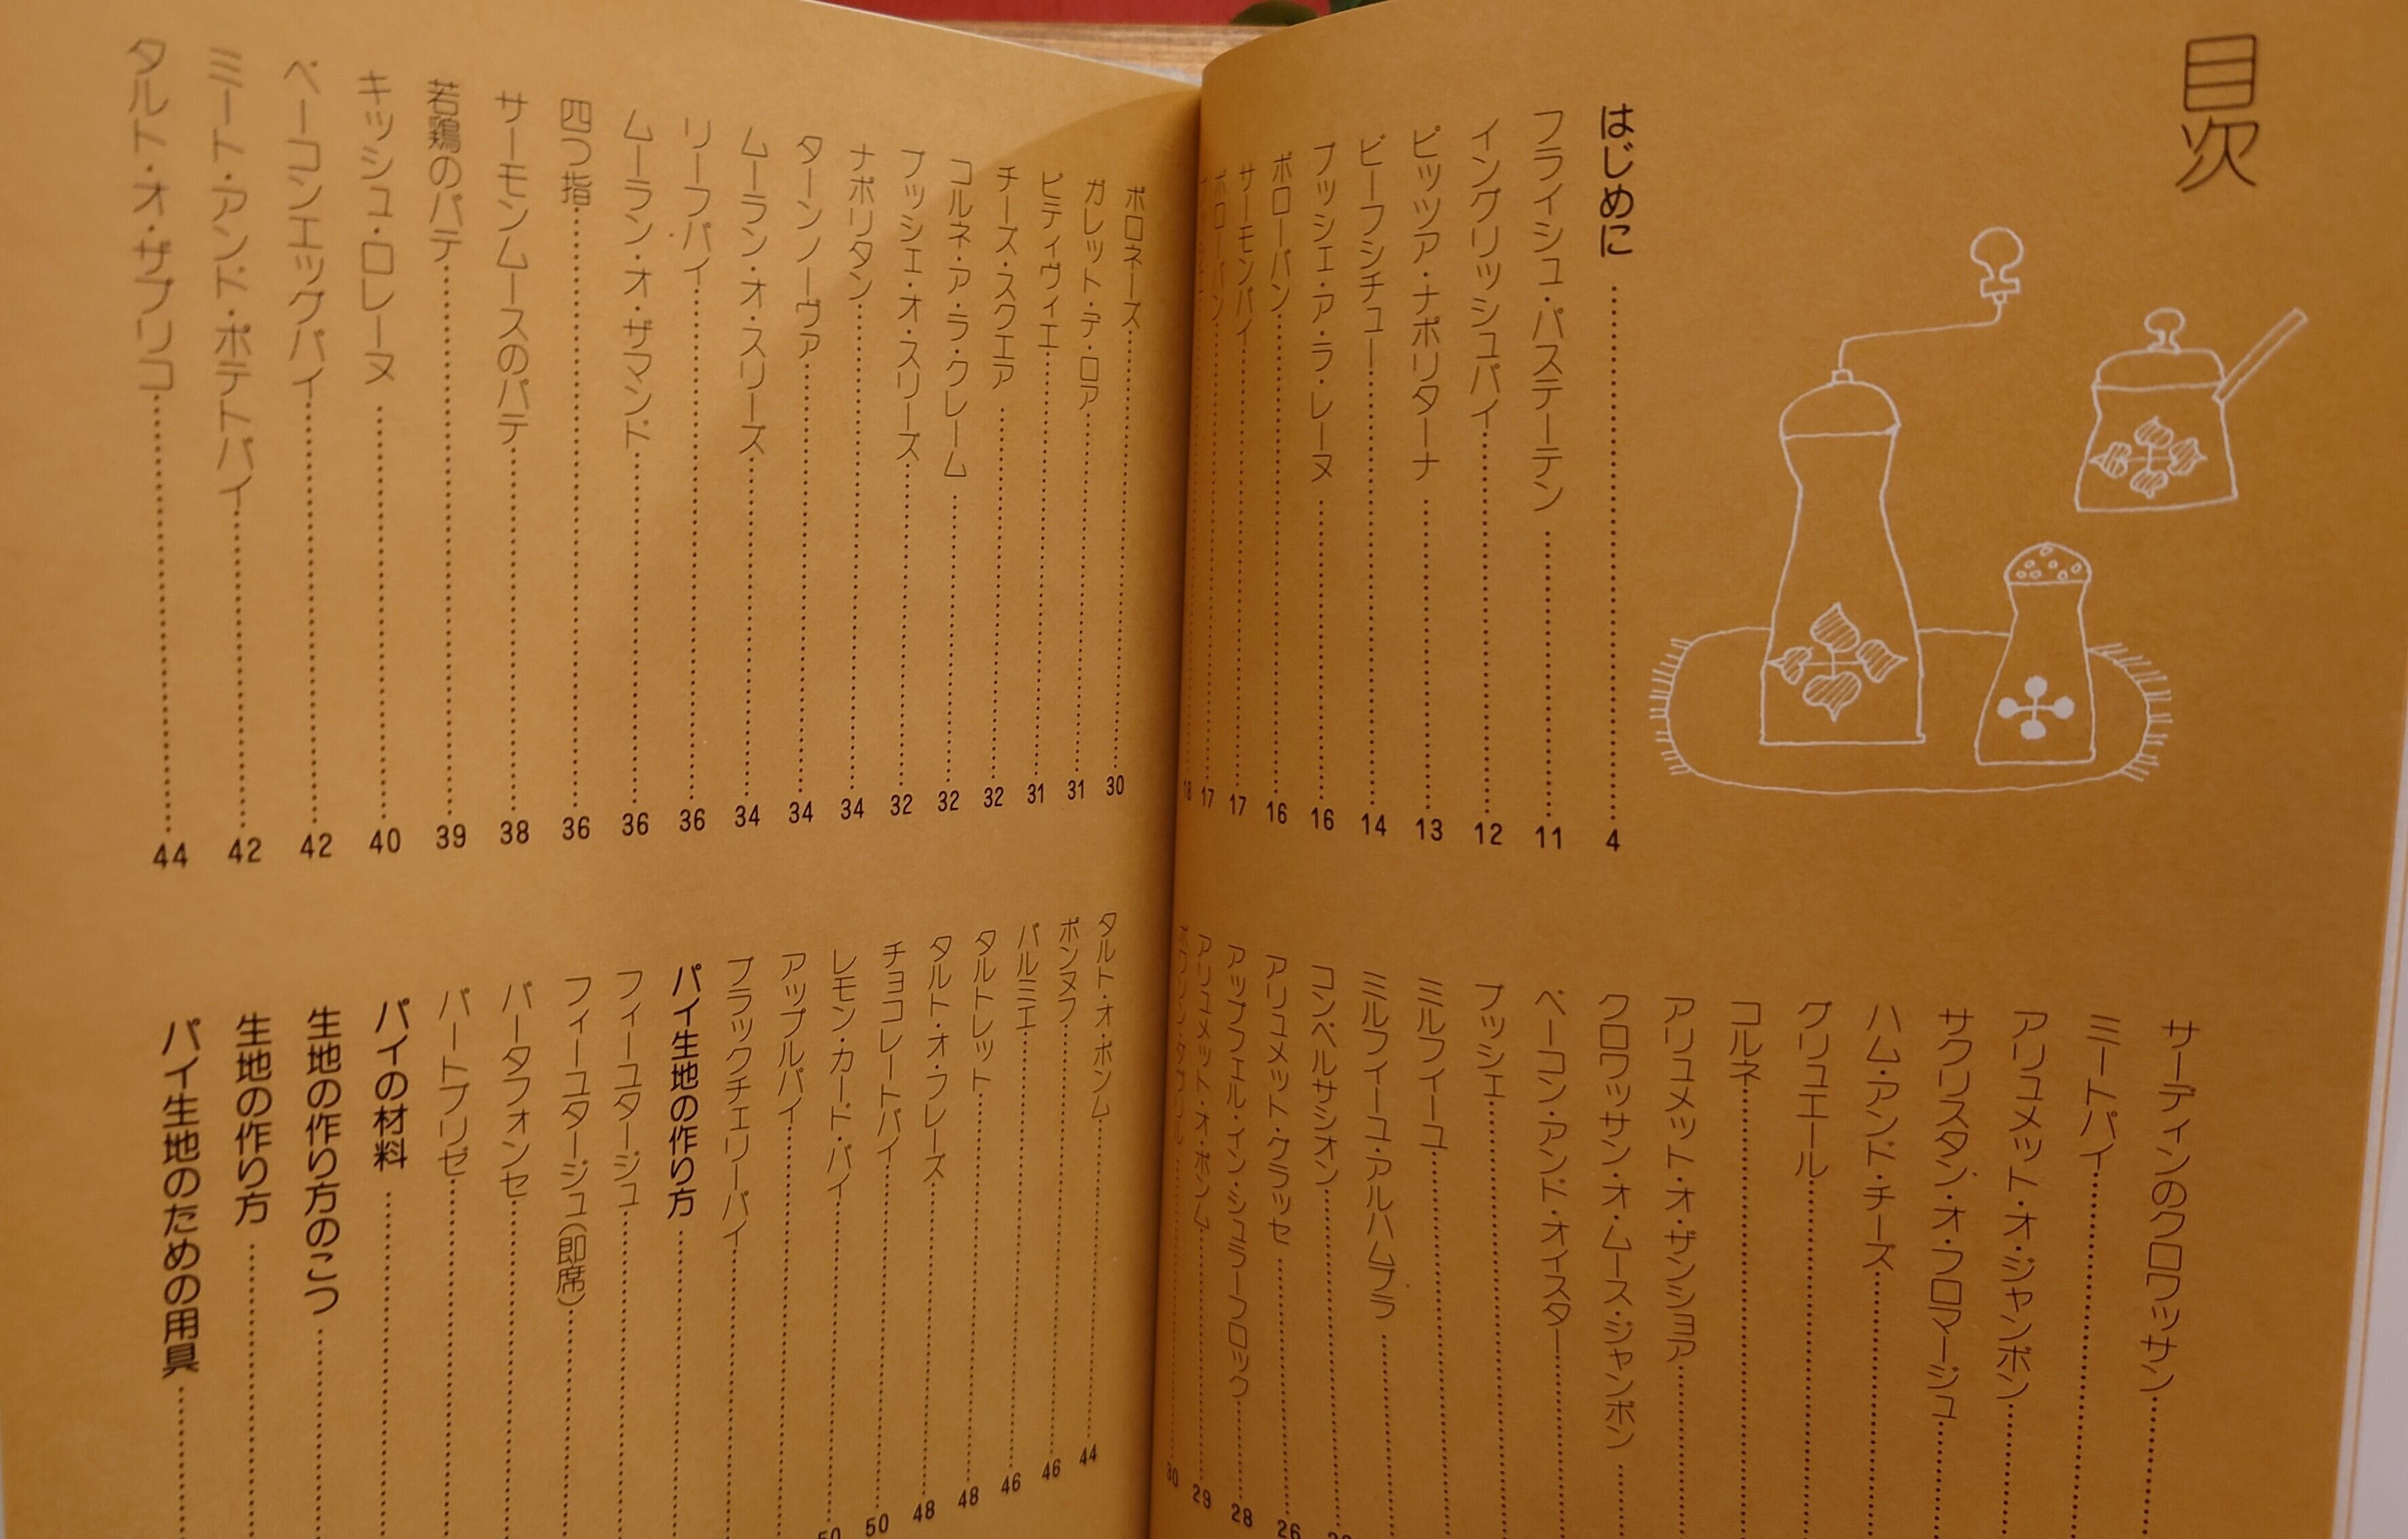 目次
はじめに 4
フライシュ・パステーテン 11
イングリッシュパイ 12
ピッツア・ナポリターナ 13
ビーフシチュー 14
ブッシェ・ア・ラ・レーヌ 16
ボローバン 16
サーモンパイ 17
ボローバン 17
18
サーディンのクロワッサン
ミートパイ
アリュメット・オ・ジャンボン
サクリスタン・オ・フロマージュ
ハム・アンド・チーズ
グリュエール
コルネ
アリュメット・オ・ザンショア
クロワッサン・オ・ムース・ジャンボン
ベーコン・アンド・オイスター
ブッシェ
ミルフィーユ
ミルフィーユ・アルハムブラ
コンベルサシオン
アリュメット・グラッセ 26
アップフェル・イン・シュラーフロック 28
アリュメット・オ・ポンム 29
30
ボロネーズ 30
ガレット・デ・ロア 31
ピティヴィエ 31
チーズ・スクエア 32
コルネ・ア・ラ・クレーム 32
ブッシェ・オ・スリーズ 32
ナポリタン 34
ターンノーヴァ 34
ムーラン・オ・スリーズ 34
リーフパイ 36
ムーラン・オ・ザマンド 36
四つ指 36
サーモンムースのパテ 38
若鶏のパテ 39
キッシュ・ロレーヌ 40
ベーコンエッグパイ 42
ミート・アンド・ポテトパイ 42
タルト・オ・ザブリコ 44
タルト・オ・ポンム 44
ポンヌフ 46
パルミエ 46
タルトレット 48
タルト・オ・フレーズ 48
チョコレートパイ 50
レモン・カード・パイ 50
アップルパイ
ブラックチェリーパイ
パイ生地の作り方
フィーユタージュ
フィーユタージュ(即席)
パータフォンセ
パートブリゼ
パイの材料
生地の作り方のこつ
生地の作り方
パイ生地のための用具